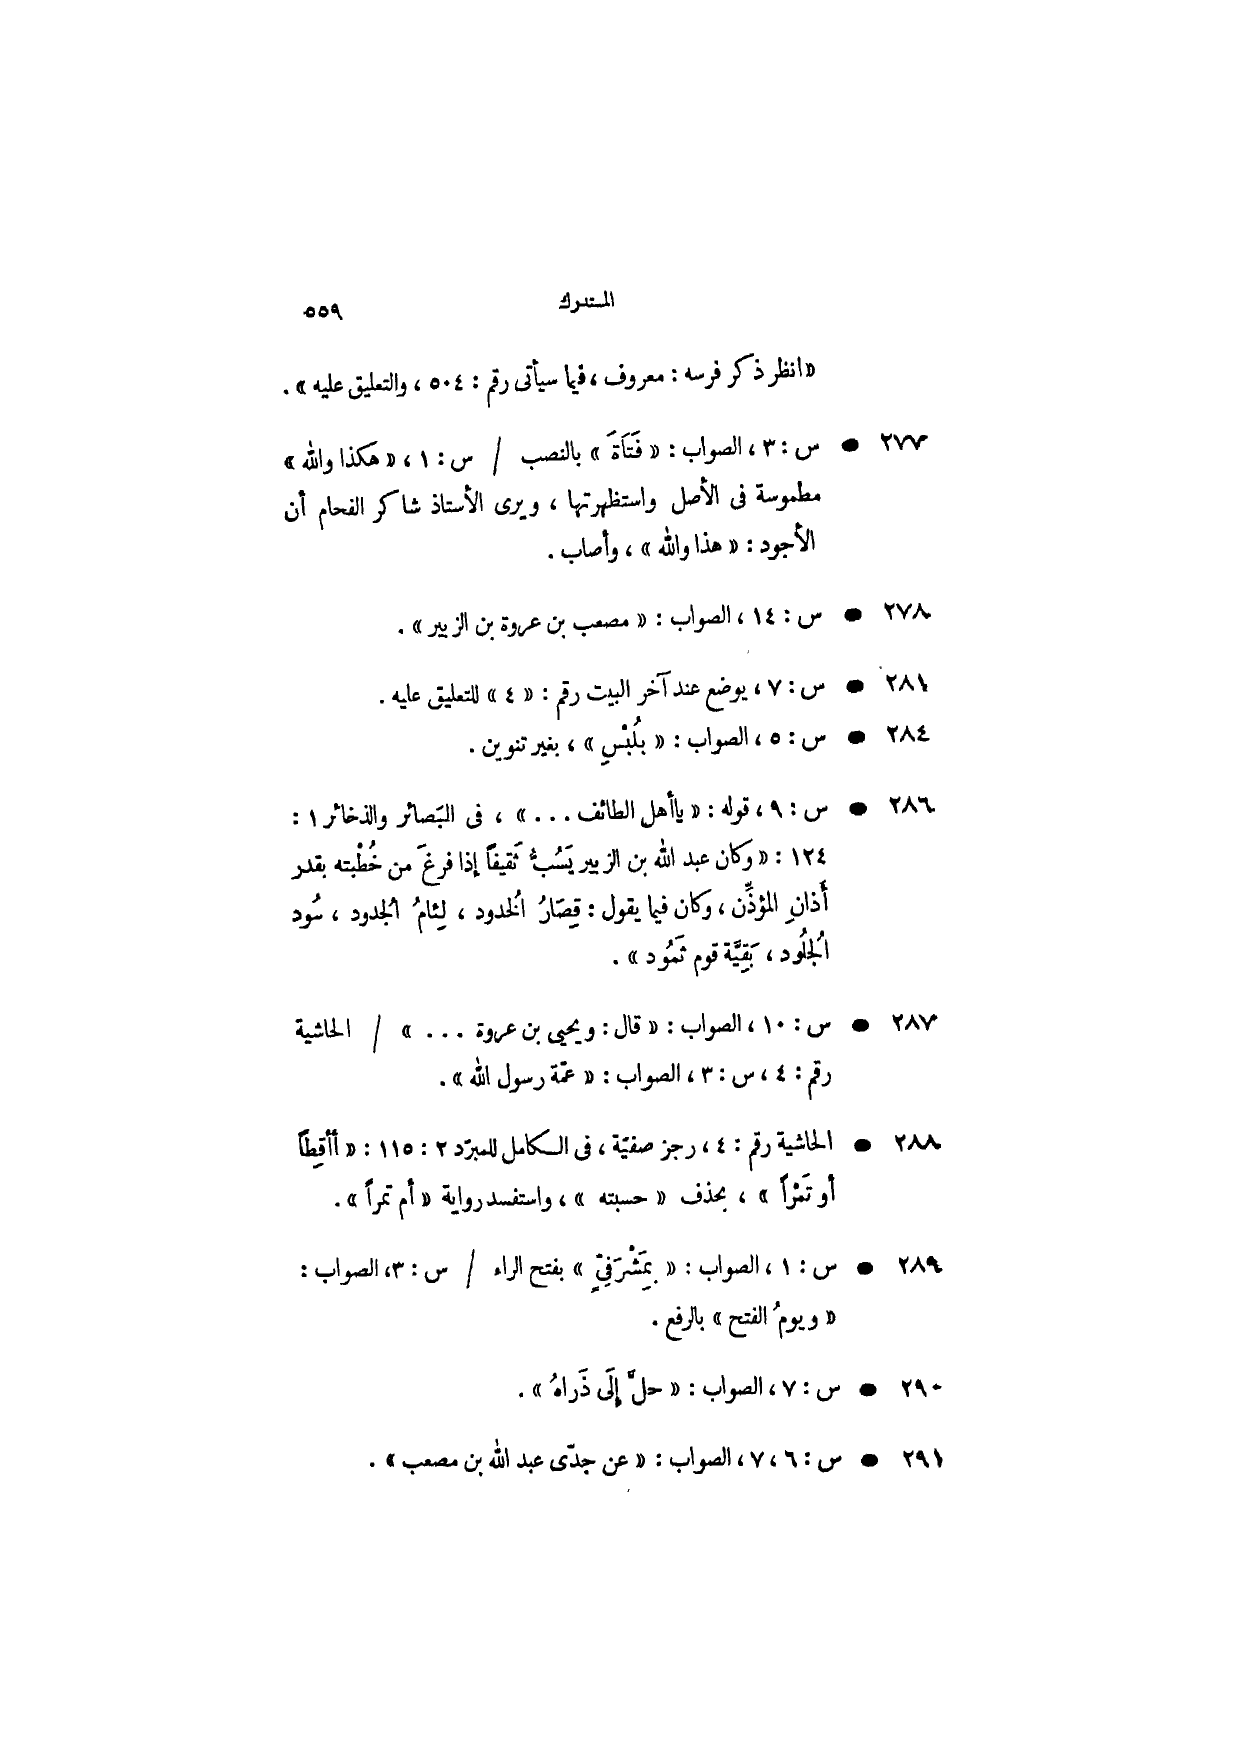 المستدرك ٥٥٩
«انظر ذكر فرسه : معروف ، فيما سيأتى رقم : ٥٠٤ ، والتعليق عليه» .
٢٧٧ ● س : ٣ ، الصواب : « فَتَاةَ » بالنصب / س : ١ ، « هكذا والله »
مطموسة فى الأصل واستظهرتها ، ويرى الأستاذ شاكر الفحام أن
الأجود : « هذا والله » ، وأصاب .
٢٧٨ ● س : ١٤ ، الصواب : « مصعب بن عروة بن الزبير » .
٢٨١ ● س : ٧ ، يوضع عند آخر البيت رقم : « ٤ » للتعليق عليه .
٢٨٤ ● س : ٥ ، الصواب : « بلُبْسِ » ، بغير تنوين .
٢٨٦ ● س : ٩ ، قوله : « يا أهل الطائف ... » ، فى البَصائر والذخائر ١ :
١٢٤ : « وكان عبد الله بن الزبير يَسُبُّ ثَقيفاً إذا فرغَ من خُطْبته بقدر
أَذانِ المؤذِّن ، وكان فيما يقول : قِصَارُ الخُدود ، لِئامُ الجُدود ، سُود
الجُلُود ، بَقِيَّة قوم ثَمُود » .
٢٨٧ ● س : ١٠ ، الصواب : « قال : ويحيى بن عروة ... » / الحاشية
رقم : ٤ ، س : ٣ ، الصواب : « عمّة رسول الله » .
٢٨٨ ● الحاشية رقم : ٤ ، رجز صفيّة ، فى الكامل للمبرّد ٢ : ١١٥ : « أأقِطاً
أو تَمْراً » ، بحذف « حسبته » ، واستفسد رواية « أم تمراً » .
٢٨٩ ● س : ١ ، الصواب : « بِمَشْرَفِيٍّ » بفتح الراء / س : ٣ ، الصواب :
« ويومُ الفتح » بالرفع .
٢٩٠ ● س : ٧ ، الصواب : « حلَّ إِلَى ذَراهُ » .
٢٩١ ● س : ٦ ، ٧ ، الصواب : « عن جدّى عبد الله بن مصعب » .